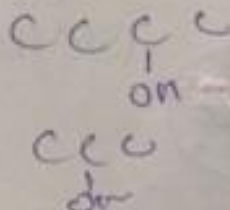 C C C C
OH
C C C